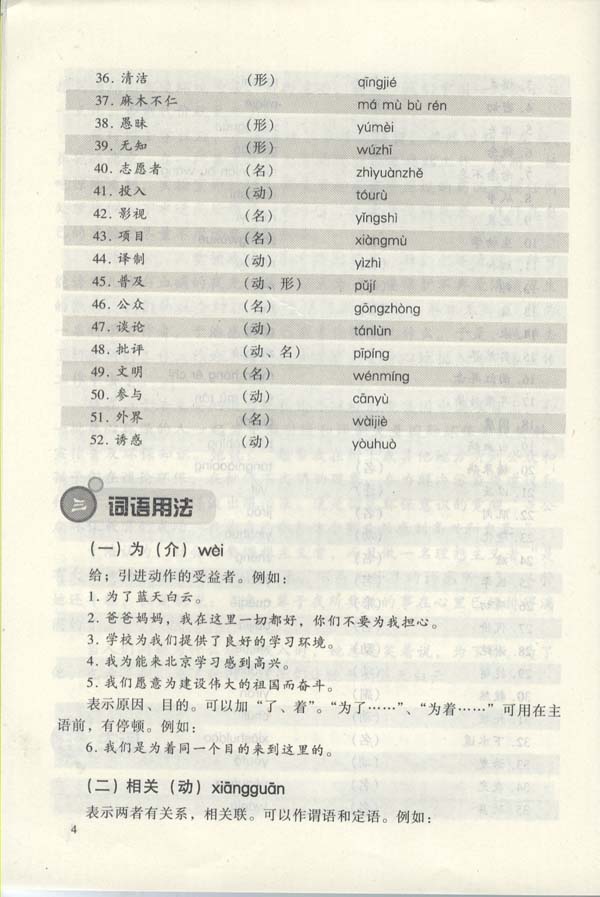 36. 清洁 (形) qīngjié
37. 麻木不仁 má mù bù rén
38. 愚昧 (形) yúmèi
39. 无知 (形) wúzhī
40. 志愿者 (名) zhìyuànzhě
41. 投入 (动) tóurù
42. 影视 (名) yǐngshì
43. 项目 (名) xiàngmù
44. 译制 (动) yìzhì
45. 普及 (动、形) pǔjí
46. 公众 (名) gōngzhòng
47. 谈论 (动) tánlùn
48. 批评 (动、名) pīpíng
49. 文明 (名) wénmíng
50. 参与 (动) cānyù
51. 外界 (名) wàijiè
52. 诱惑 (动) yòuhuò
三 词语用法
(一) 为 (介) wèi
给；引进动作的受益者。例如：
1. 为了蓝天白云。
2. 爸爸妈妈，我在这里一切都好，你们不要为我担心。
3. 学校为我们提供了良好的学习环境。
4. 我为能来北京学习感到高兴。
5. 我们愿意为建设伟大的祖国而奋斗。
表示原因、目的。可以加“了、着”。“为了……”、“为着……”可用在主
语前，有停顿。例如：
6. 我们是为着同一个目的来到这里的。
(二) 相关 (动) xiāngguān
表示两者有关系，相关联。可以作谓语和定语。例如：
4